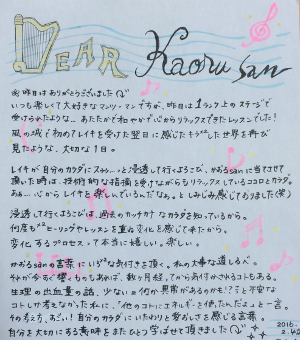 DEAR Kaoru san
昨日はありがとうございました
いつも楽しくて大好きなマンツーマンですが、昨日は1ランク上のステージで
受けられたような、あたたかで和やかで心からリラックスできたレッスンでした!
風の域で初めてレイキを受けた翌日に感じたキラキラした世界を再び
見たような、大切な1日。
レイキが自分のカラダにスゥーッと浸透して行くよろこび、かおるsanに当てさせて
頂いた時は、技術的な指摘を受けながらもリラックスしているココロとカラダ。
あぁ…心からレイキと楽しんでいるんだなぁ。としみじみ感じておりました(笑)
浸透して行くよろこびは、過去のカッチカチなカラダを知っているから。
何度もヒーリングやレッスンを重ね変化を感じて来たから。
変化するプロセスって本当に嬉しい。楽しい。
かおるsanの言葉にいつも気付きを頂く。私の大事な道しるべ。
それが今すぐ響くものもあれば、数ヶ月経ってから気付かされるコトもある。
生理の出血量の話、少ない=何か異常があるのかも!?と不安な
コトしか考えなかった私に、「他のコトにエネルギーを使ったんだよ」と一言。
その考え方、あぁ!自分のカラダにいたわりと愛おしさを感じる言葉。
自分を大切にする意味をまたひとつ学ばせて頂きました
2016.